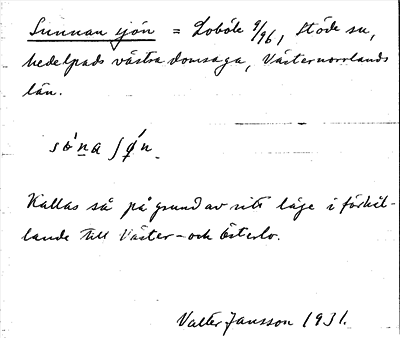 Sunnan sjön = Loböle 9/96, Stöde sn,
Medelpads västra domsaga, Västernorrlands
län.
sò́na ʃǿn
Kallas så på grund av sitt läge i förhål-
lande till Väster- och Österlo.
Valter Jansson 1931.